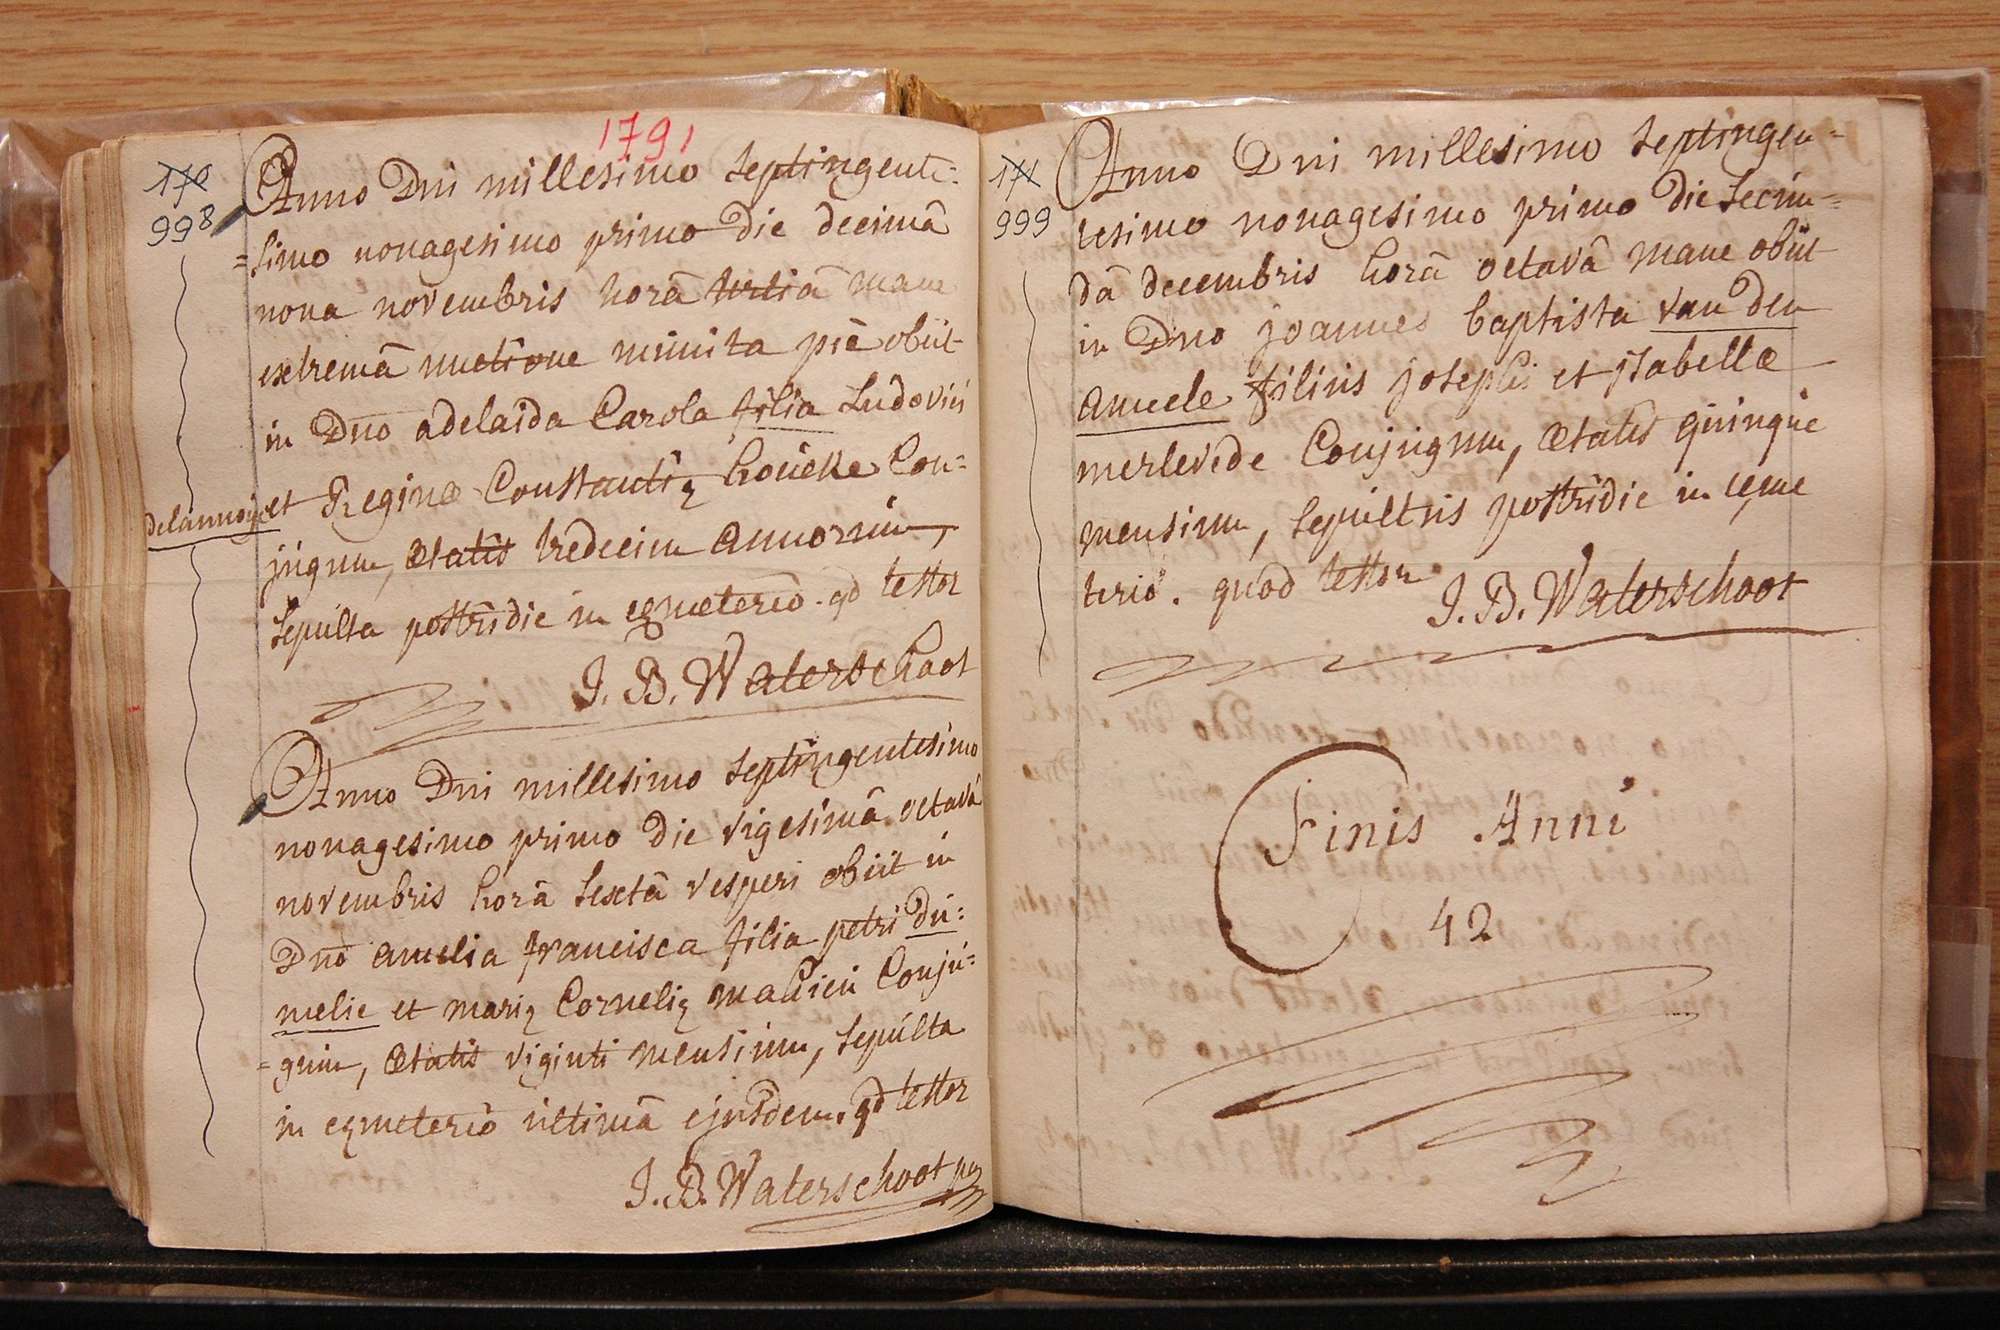 1791
170
998
Anno Dni millesimo septingente=
=simo nonagesimo primo die decimâ
nona novembris horâ tertiâ mane
extremâ unctione munita piè obiit
in Dno adelaïda Carola filia Ludovici
delannoy et Reginæ Constantiæ houcke Con=
jugum, ætatis tredecim annorum,
sepulta postridie in cæmeterio. qd testor
J. B. Waterschoot
Anno Dni millesimo septingentesimo
nonagesimo primo die vigesimâ octavâ
novembris horâ sextâ vesperi obiit in
Dno amelia francisca filia petri du=
melie et mariæ Corneliæ mahieu Conju=
=gum, ætatis viginti mensium, sepulta
in cæmeterio ultimâ ejusdem. qd testor
J. B. Waterschoot
171
999
Anno Dni millesimo septingen=
tesimo nonagesimo primo die secun=
dâ decembris horâ octavâ mane obiit
in Dno joannes baptista van den
amele filius josephi et jsabellæ
merlevede Conjugum, ætatis quinque
mensium, sepultus postridie in cæme
terio. quod testor
J. B. Waterschoot
Finis Anni
42